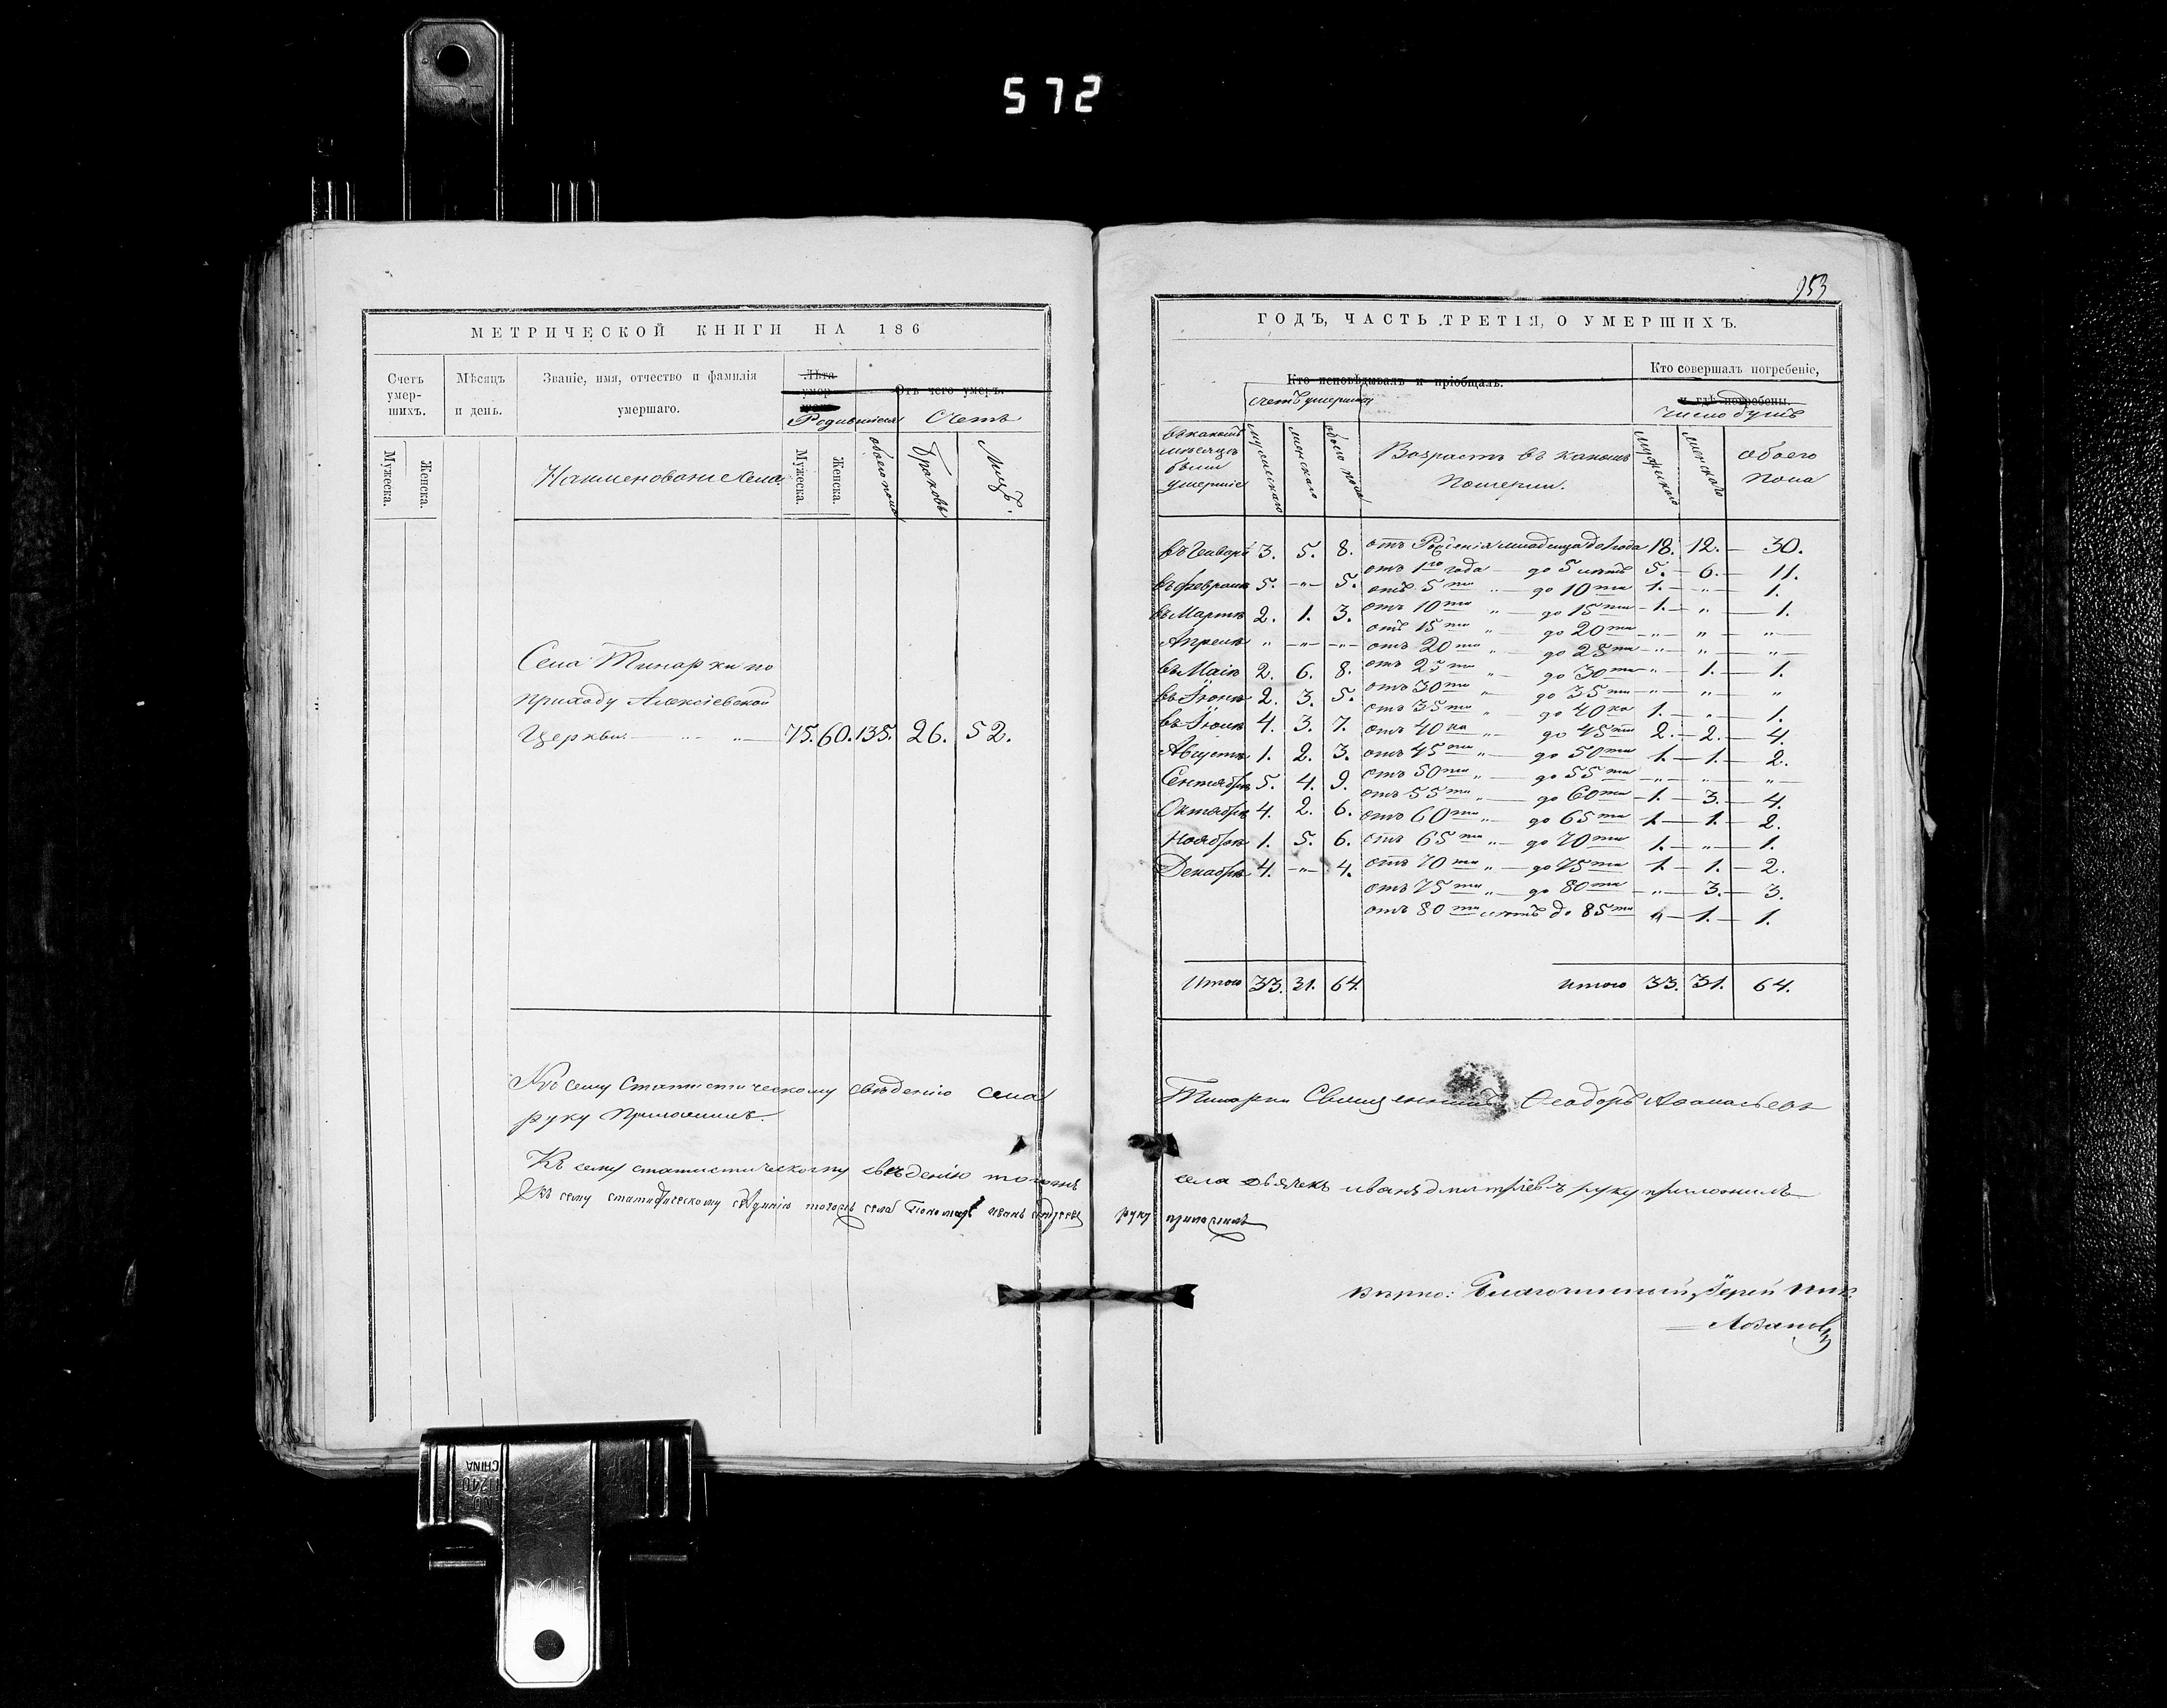 572
МЕТРИЧЕСКОЙ КНИГИ НА 186
Счетъ умер-шихъ.
Мужеска.
Женска.
Мѣсяцъ и день.
Званіе, имя, отчество и фамилія умершаго.
Лѣта умер
Родившихся
Отъ чего умеръ.
Счетъ
Наименованіе села
Мужеска.
Женска.
обоего пола
Браковъ
Лицъ.
Села Тинарки по
приходу Алексіевской
Церкви. 75. 60. 135. 26. 52.
Къ сему Статистическому свѣденію села
руку приложилъ.
Къ сему статистическому свѣденію тогожъ
Къ сему статистическому свѣденію тогожъ села Пономарь иванъ
953
ГОДЪ, ЧАСТЬ ТРЕТІЯ, О УМЕРШИХЪ.
Кто исповѣдывалъ и пріобщалъ.
Счетъ умершихъ
Кто совершалъ погребеніе,
и гдѣ погребены.
Число душъ
въ какомъ мѣсяцѣ были умершіе
мужескаго
женскаго
обоего пола
Возрастъ въ какомъ померли.
мужескаго
женскаго
обоего пола
въ Генварѣ 3. 5. 8.
въ февралѣ 5. -„- 5.
въ Мартѣ 2. 1. 3.
Апрелѣ „ -„- -„-
въ Маіѣ 2. 6. 8.
въ Іюнѣ 2. 3. 5.
въ Іюлѣ 4. 3. 7.
Августѣ 1. 2. 3.
Сентябрѣ 5. 4. 9.
Октябрѣ 4. 2. 6.
Ноябрѣ 1. 5. 6.
Декабрѣ 4. -„- 4.
отъ Рожденія младенца до 1 года 18. 12. — 30.
отъ 1го года — до 5 лѣтъ 5. — 6. — 11.
отъ 5ти „ — до 10ти 1. — „ — 1.
отъ 10ти „ — до 15ти — 1. — „ — 1.
отъ 15ти „ — до 20ти — „ — „ — „
отъ 20ти „ — до 25ти — „ — „ — „
отъ 25ти „ — до 30ти — „ — 1. — 1.
отъ 30ти „ — до 35ти — „ — „ — „
отъ 35ти „ — до 40ка 1. — „ — 1.
отъ 40ка „ — до 45ти 2. — 2. — 4.
отъ 45ти „ — до 50ти 1. — 1. — 2.
отъ 50ти „ — до 55ти — „ — „ — „
отъ 55ти „ — до 60ти — 1. — 3. — 4.
отъ 60ти „ — до 65ти 1. — 1. — 2.
отъ 65ти „ — до 70ти 1. — „ — 1.
отъ 70ти „ — до 75ти 1. — 1. — 2.
отъ 75ти „ — до 80ти — „ — 3. — 3.
отъ 80ти лѣтъ до 85ти „ — 1. — 1.
Итого 33. 31. 64. итого 33. 31. 64.
Тинарки Священникъ Ѳеодоръ Аѳанасьевъ
села дьячекъ иванъ дмитріевъ руку приложилъ
руку приложилъ
Вѣрно: Благочинный, Іерей
NO 11240
CHINA